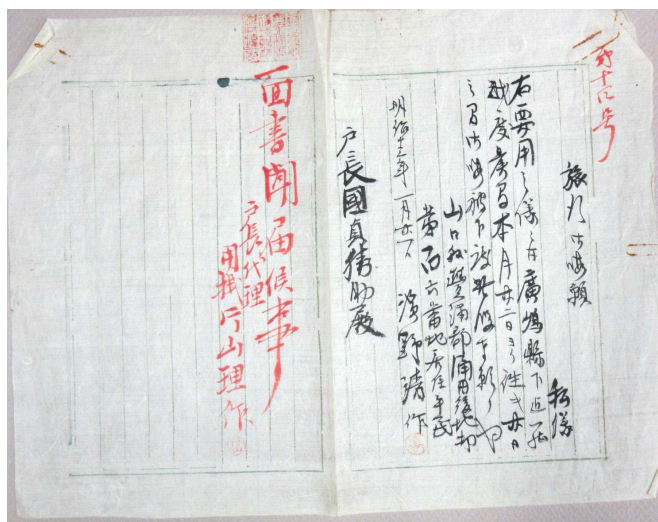 第十五号
旅行御願
私儀
右要用之儀ニ付廣嶋縣下迄罷
越度候間本月廿二日ヨリ往弐廿日
之間御暇被下度此段奉願候也
山口縣豊浦郡
第百六番地居住平民
濱野清作
明治十三年一月廿一日
戸長國貞精助殿
面書聞届候事
戸長代理
用掛片山理作